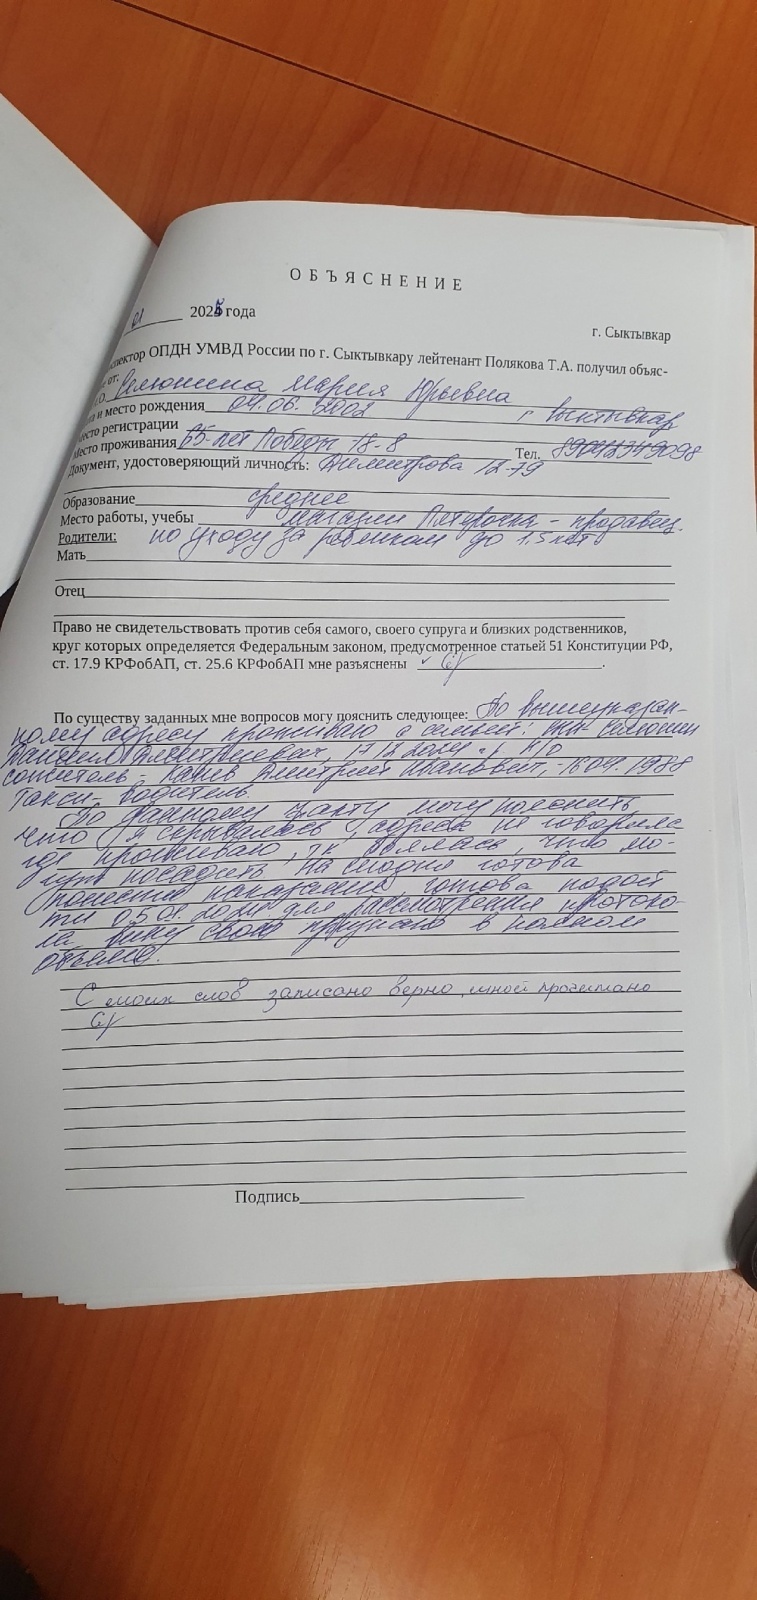 ОБЪЯСНЕНИЕ
01 2025 года
г. Сыктывкар
спектор ОПДН УМВД России по г. Сыктывкару лейтенант Полякова Т.А. получил объяс-
от:
Мария Юрьевна
и место рождения 04.06.2002 г. Сыктывкар
место регистрации
Место проживания 65-лет Победы 18-8 Тел.
Документ, удостоверяющий личность: Димитрова 12-79
Образование среднее
Место работы, учебы магазин Пятерочка - продавец.
Родители: по уходу за ребенком до 1,5 лет
Мать
Отец
Право не свидетельствовать против себя самого, своего супруга и близких родственников,
круг которых определяется Федеральным законом, предусмотренное статьей 51 Конституции РФ,
ст. 17.9 КРФобАП, ст. 25.6 КРФобАП мне разъяснены
По существу заданных мне вопросов могу пояснить следующее: По вышеуказан-
ному адресу проживаю с семьей:
Дмитриевич, 17.12.2024 г.р. Н/О
сожитель - Дмитрий Иванович, 16.04.1988
такси водитель
По данному факту могу пояснить,
что я скрывалась, адреса не говорила
где проживаю, т.к. боялась, что мо-
гут посадить. На сегодня готова
понести наказание, готова подой
ти 05.01.2024 для рассмотрения протоко-
ла, вину свою признаю в полном
объеме.
С моих слов записано верно, мной прочитано
Подпись